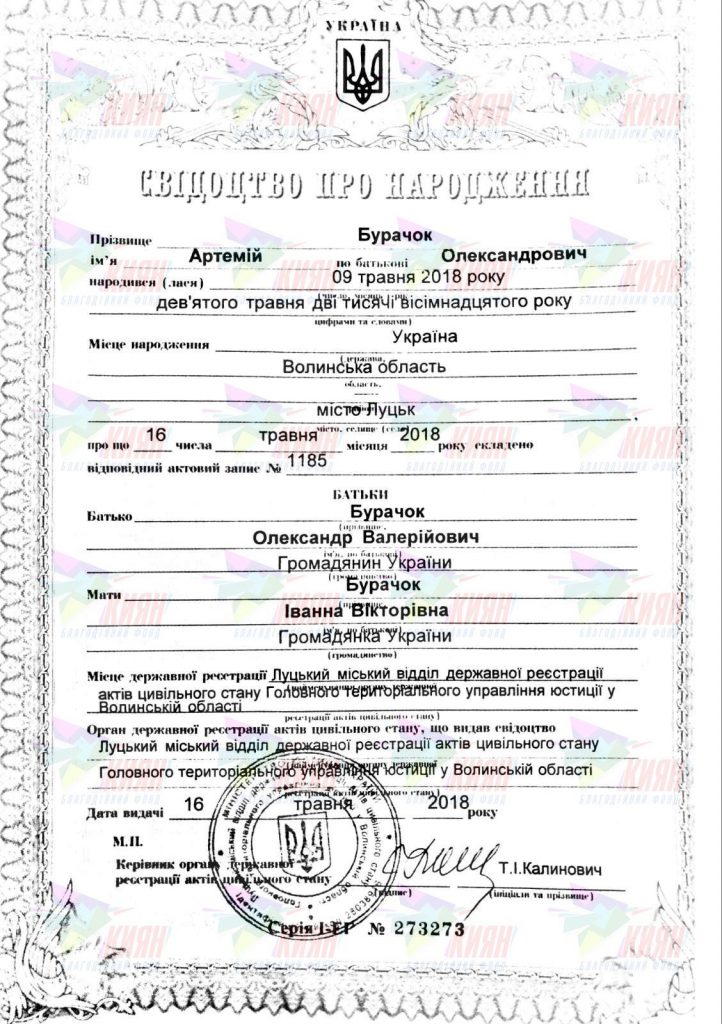 УКРАЇНА
СВІДОЦТВО ПРО НАРОДЖЕННЯ
Прізвище Бурачок
ім’я Артемій по батькові Олександрович
народився (лася) 09 травня 2018 року
(число, місяць і рік,
дев'ятого травня дві тисячі вісімнадцятого року
цифрами та словами)
Місце народження Україна
(держава,
Волинська область
область,
місто Луцьк
місто, селище (село)
про що 16 числа травня місяця 2018 року складено
відповідний актовий запис № 1185
БАТЬКИ
Батько Бурачок
(прізвище,
Олександр Валерійович
ім'я, по батькові)
Громадянин України
(громадянство)
Мати Бурачок
(прізвище,
Іванна ВІкторівна
ім'я, по батькові)
Громадянка України
(громадянство)
Місце державної реєстрації Луцький міський відділ державної реєстрації
(найменування органу державної
актів цивільного стану Головного територіального управління юстиції у
Волинській області
реєстрації актів цивільного стану)
Орган державної реєстрації актів цивільного стану, що видав свідоцтво
Луцький міський відділ державної реєстрації актів цивільного стану
(найменування органу державної
Головного територіального управління юстиції у Волинській області
реєстрації актів цивільного стану)
Дата видачі 16 травня 2018 року
М.П.
Керівник органу державної
реєстрації актів цивільного стану Т.І.Калинович
(підпис) (ініціали та прізвище)
Серія І-ЕГ № 273273
КИЯН
БЛАГОДІЙНИЙ ФОНД